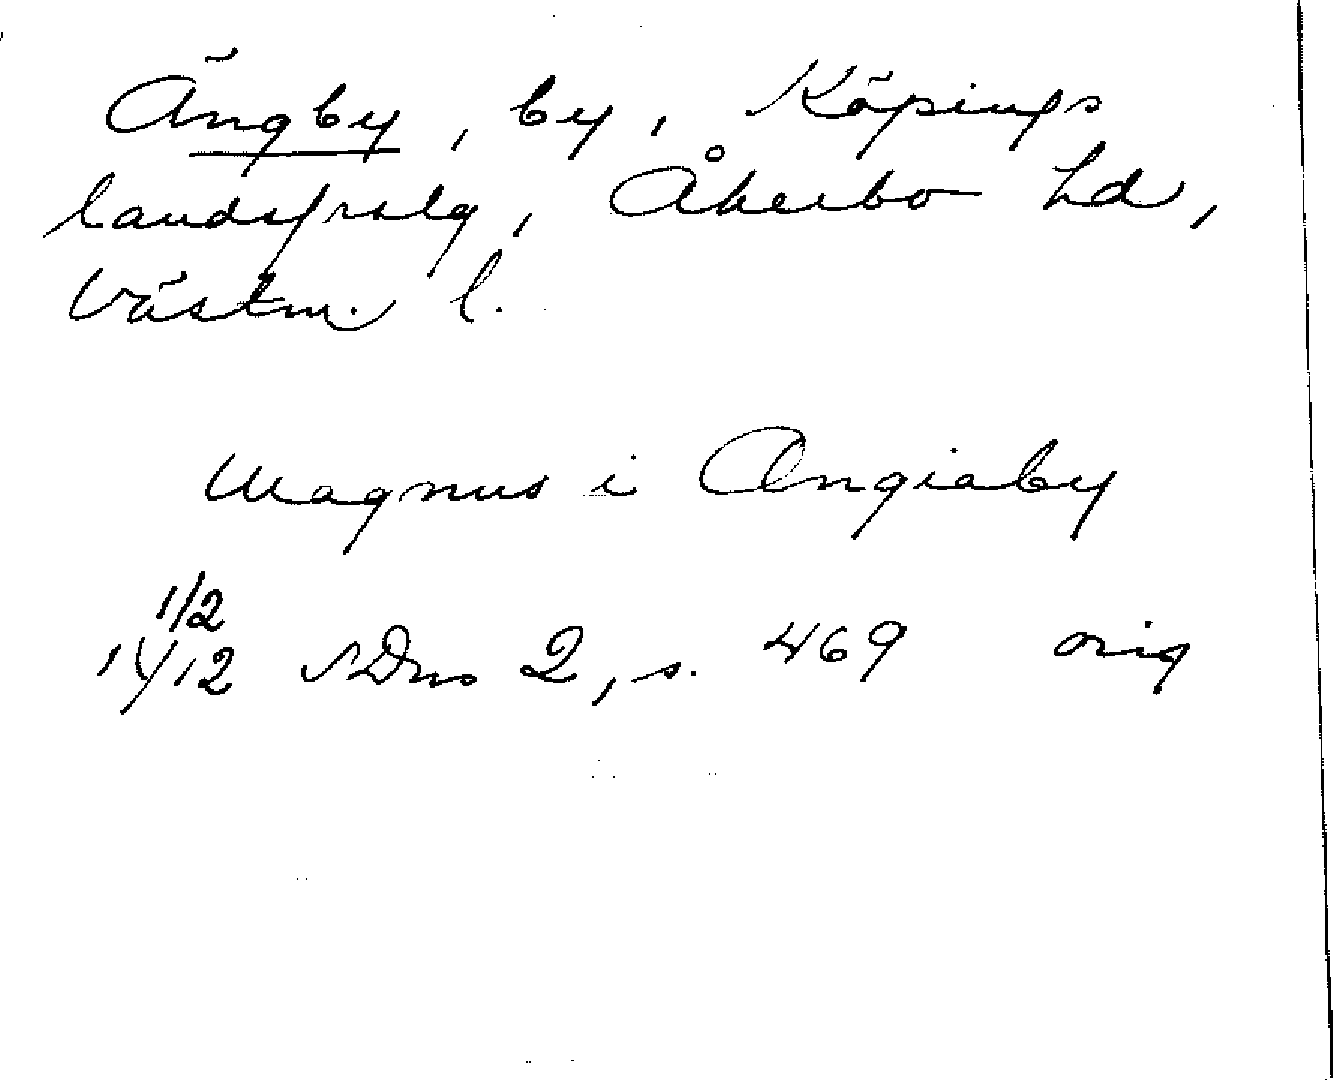 Ängby, by, Köpings
landsförslg, Åkerbo hd,
Västm. l.
Magnus i Ængiaby
1/2
1412 SDns 2, s. 469 orig